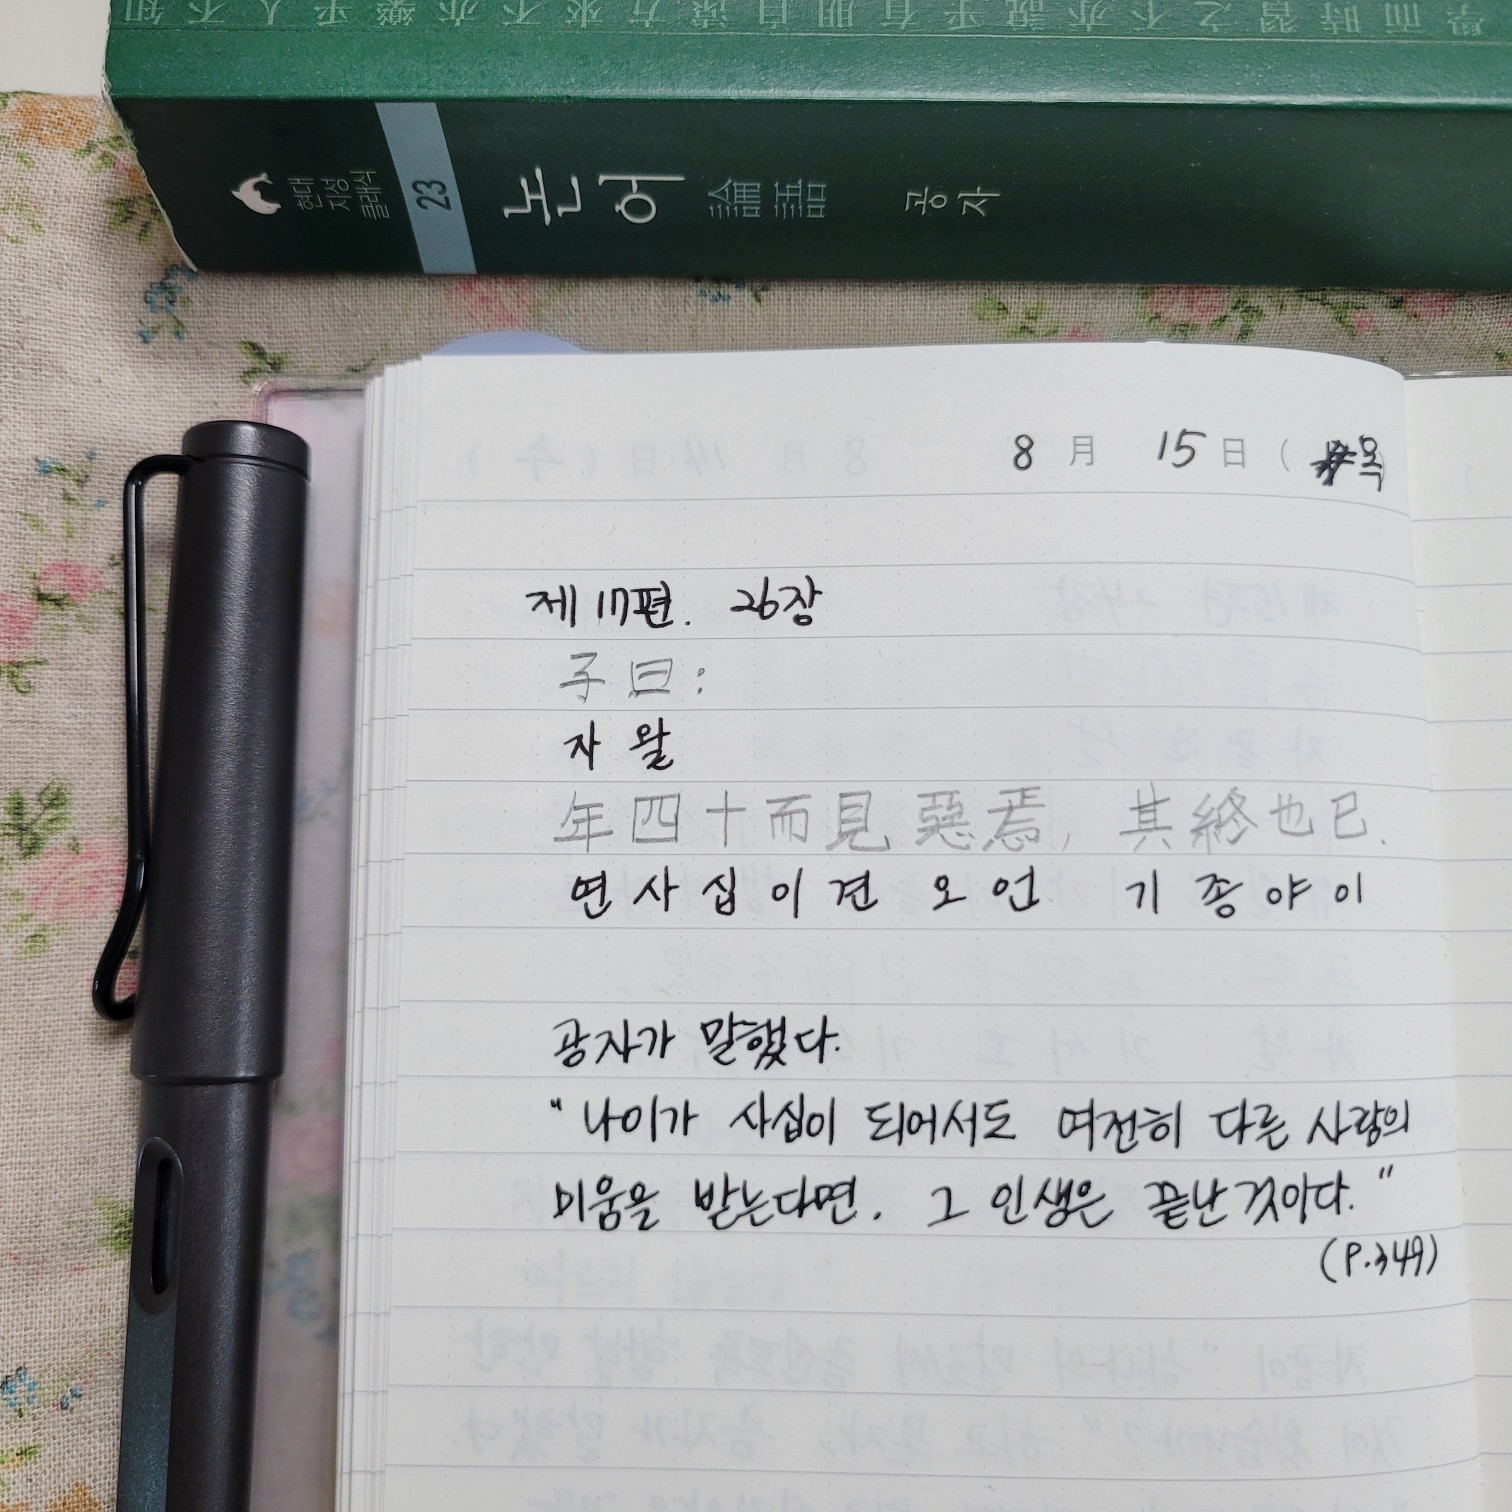 學而時習之不亦說乎有朋自遠方來不亦樂乎人不知
현대
지성
클래식
23
논어 論語 공자
8 月 15 日 ( 목
제 17편. 26장
子曰:
자왈
年四十而見惡焉, 其終也已.
연사십이견오언 기종야이
공자가 말했다.
"나이가 사십이 되어서도 여전히 다른 사람의
미움을 받는다면. 그 인생은 끝난 것이다."
(P.349)